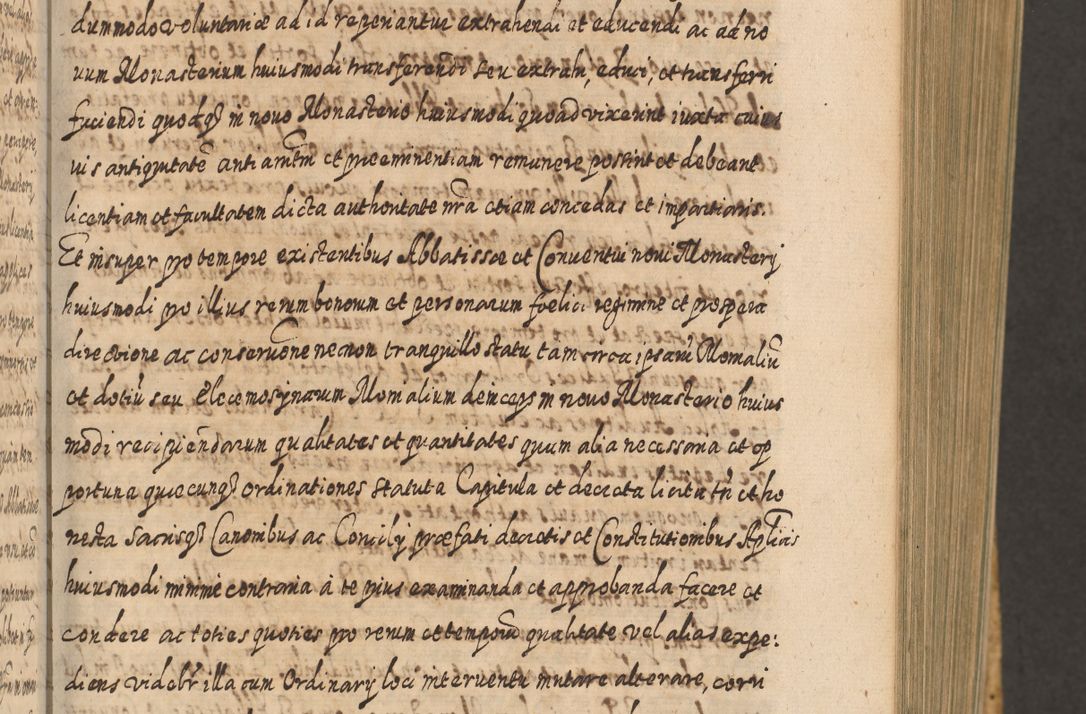 dummodo voluntariæ ad id reperiantur extrahendi et educendi ac ad no
uum Monasterium huiusmodi transferendi seu extrahi, educi, et transferri
faciendi quodq3 in nouo Monasterio huiusmodi quoad vixerint iuxta cuius
uis antiquitatē et præeminentiam remanere possint et debeant
licentiam et facultatem dicta authoritate nrā etiam concedas et impartiaris.
Et insuper pro tempore existentibus Abbatissæ et Conuentui noui Monasterij
huiusmodi pro illius rerum bonorum et personarum foelici regimine et prospera
directione ac conseruōne necnon tranquillo statu tam circa ipsarū Monialiū
et dotiū seu Elecemosynarum Monialium deinceps in nouo Monasterio huius
modi recipiendarum qualitates et quantitates quam alia necessaria et op
portuna quæcunq3 ordinationes statuta Capitula et decreta licita tn̄ et ho
nesta sacrisq3 Canonibus ac Concilij præfati decretis et Constitutionibus Aplicis
huiusmodi minimè contraria à te prius examinanda et approbanda facere et
condere ac toties quoties pro rerum et temporū qualitate vel alias expe:
diens videbr̄ illa cum Ordinarij loci interuentu mutare alterare, corri